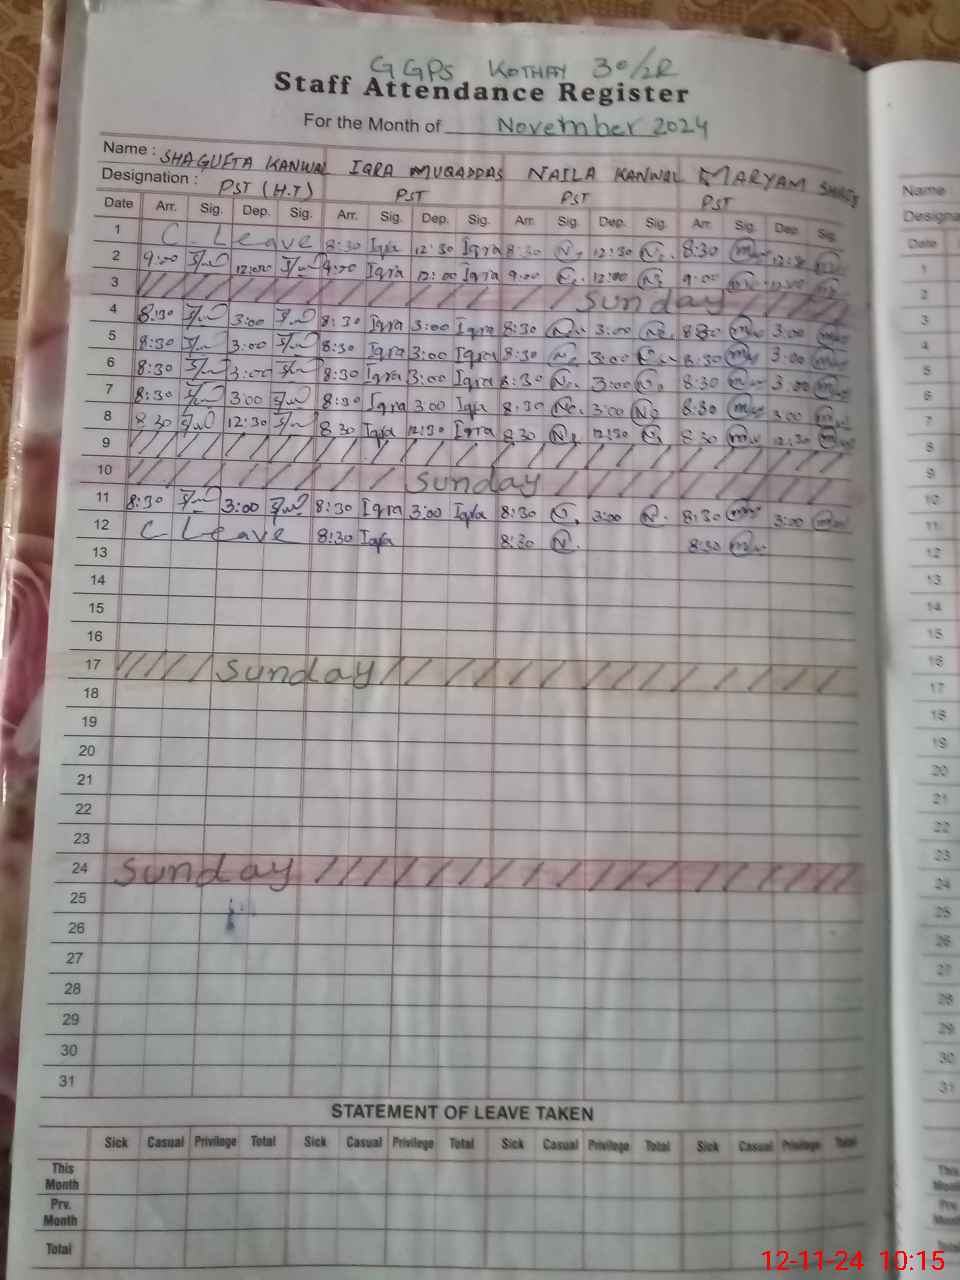 GGPS KOTHAY 30/2R
Staff Attendance Register
For the Month of November 2024
Name : SHAGUFTA KANWAL IQRA MUQADDAS NAILA KANWAL MARYAM
Designation : PST (H.T) PST PST PST
Date Arr. Sig. Dep. Sig. Arr. Sig. Dep. Sig. Arr. Sig. Dep. Sig. Arr. Sig. Dep. Sig.
1 C. Leave 8:30 Iqra 12:30 Iqra 8:30 12:30 8:30 12:30
2 9:00 12:00 9:00 Iqra 12:00 Iqra 9:00 12:00 9:00 12:00
3 Sunday
4 8:30 3:00 8:30 Iqra 3:00 Iqra 8:30 3:00 8:30 3:00
5 8:30 3:00 8:30 Iqra 3:00 Iqra 8:30 3:00 8:30 3:00
6 8:30 3:00 8:30 Iqra 3:00 Iqra 8:30 3:00 8:30 3:00
7 8:30 3:00 8:30 Iqra 3:00 Iqra 8:30 3:00 8:30 3:00
8 8:30 12:30 8:30 Iqra 12:30 Iqra 8:30 12:30 8:30 12:30
9
10 Sunday
11 8:30 3:00 8:30 Iqra 3:00 Iqra 8:30 3:00 8:30 3:00
12 C Leave 8:30 Iqra 8:30 N. 8:30
13
14
15
16
17 Sunday
18
19
20
21
22
23
24 Sunday
25
26
27
28
29
30
31
STATEMENT OF LEAVE TAKEN
Sick Casual Privilege Total Sick Casual Privilege Total Sick Casual Privilege Total Sick Casual Privilege Total
This
Month
Prv.
Month
Total
Name
Date
1
2
3
4
5
6
7
8
9
10
11
12
13
14
15
16
17
18
19
20
21
22
23
24
25
26
27
28
29
30
31
12-11-24 10:15